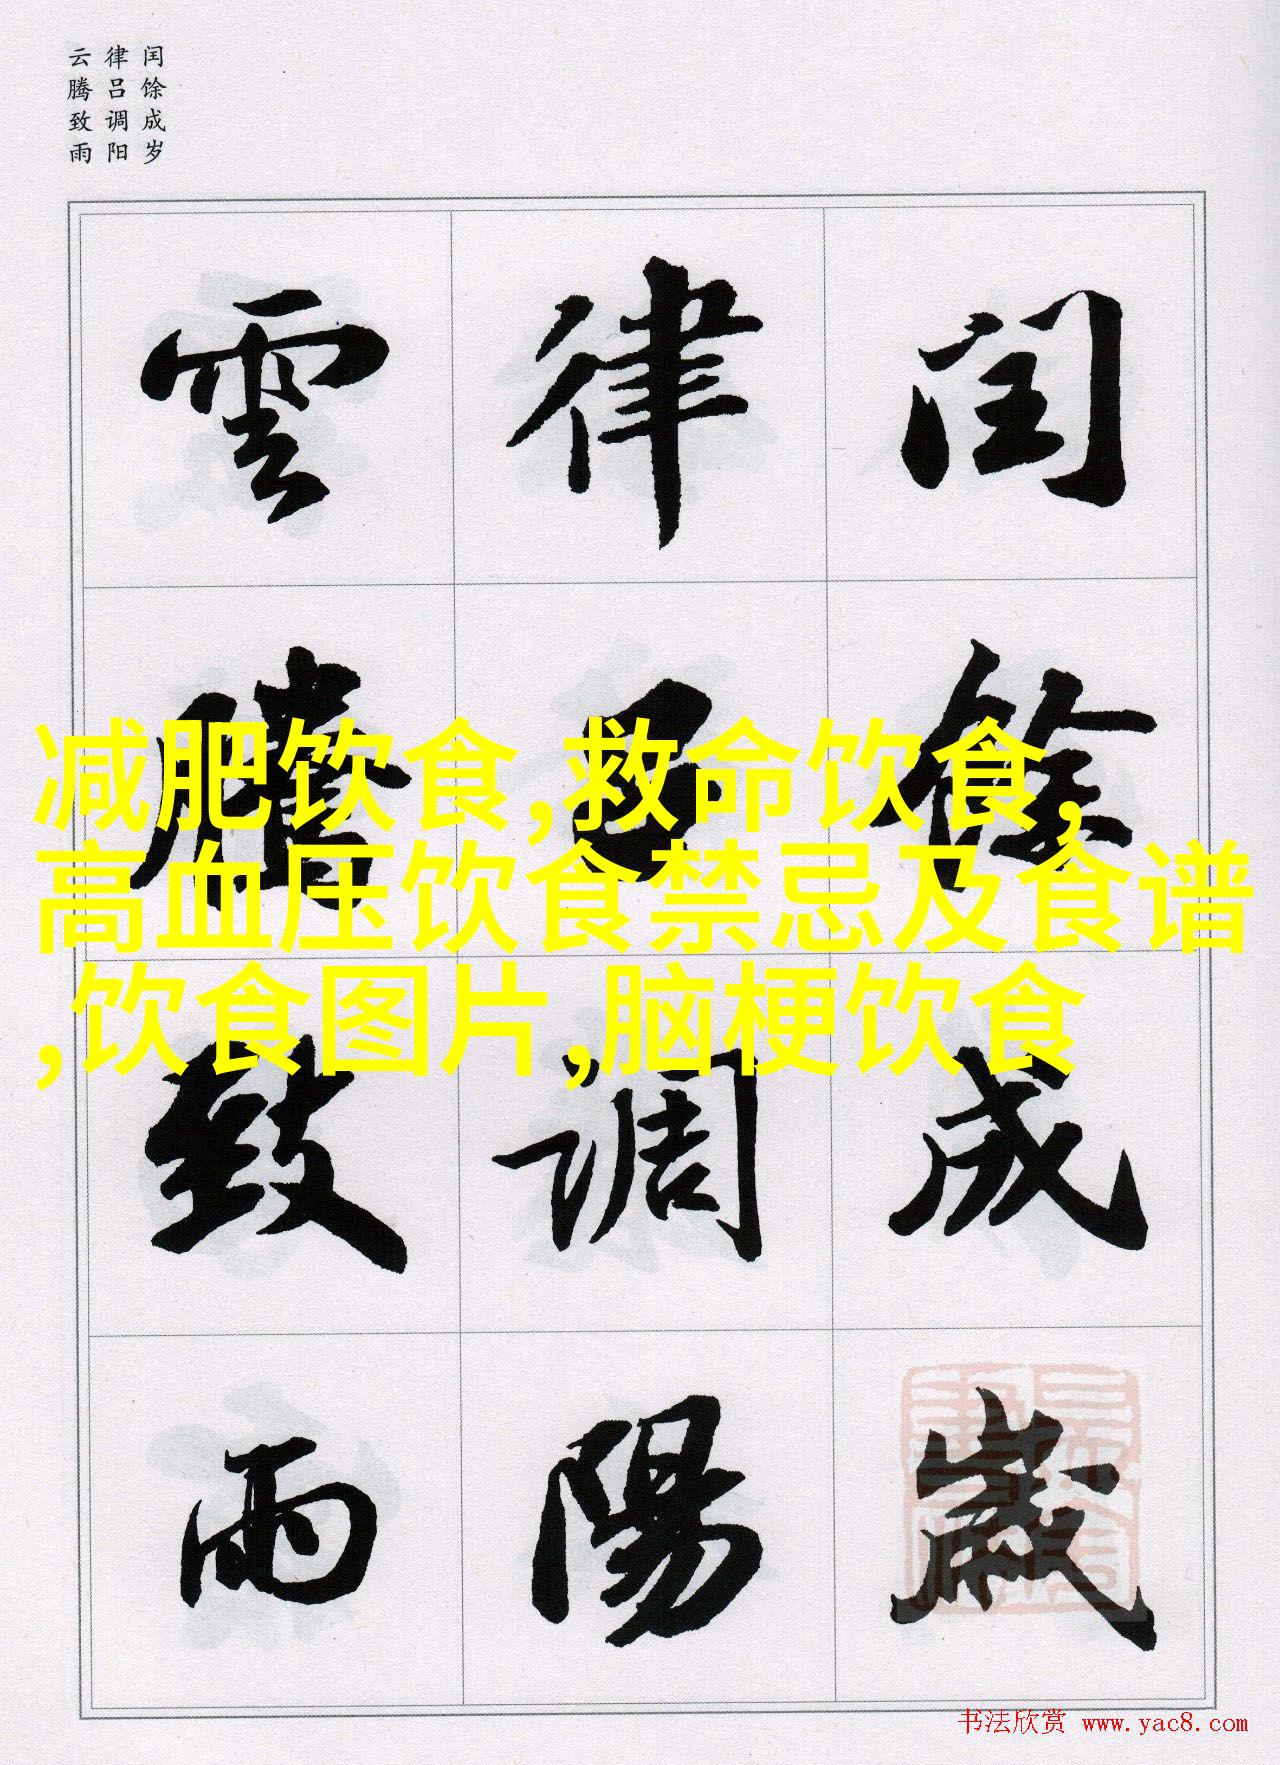 闰馀成岁
律吕调阳
云腾致雨
閏餘成歲
律呂調陽
雲騰致雨
减肥饮食,救命饮食,
高血压饮食禁忌及食谱
,饮食图片,脑梗饮食
书法欣赏 www.yac8.com